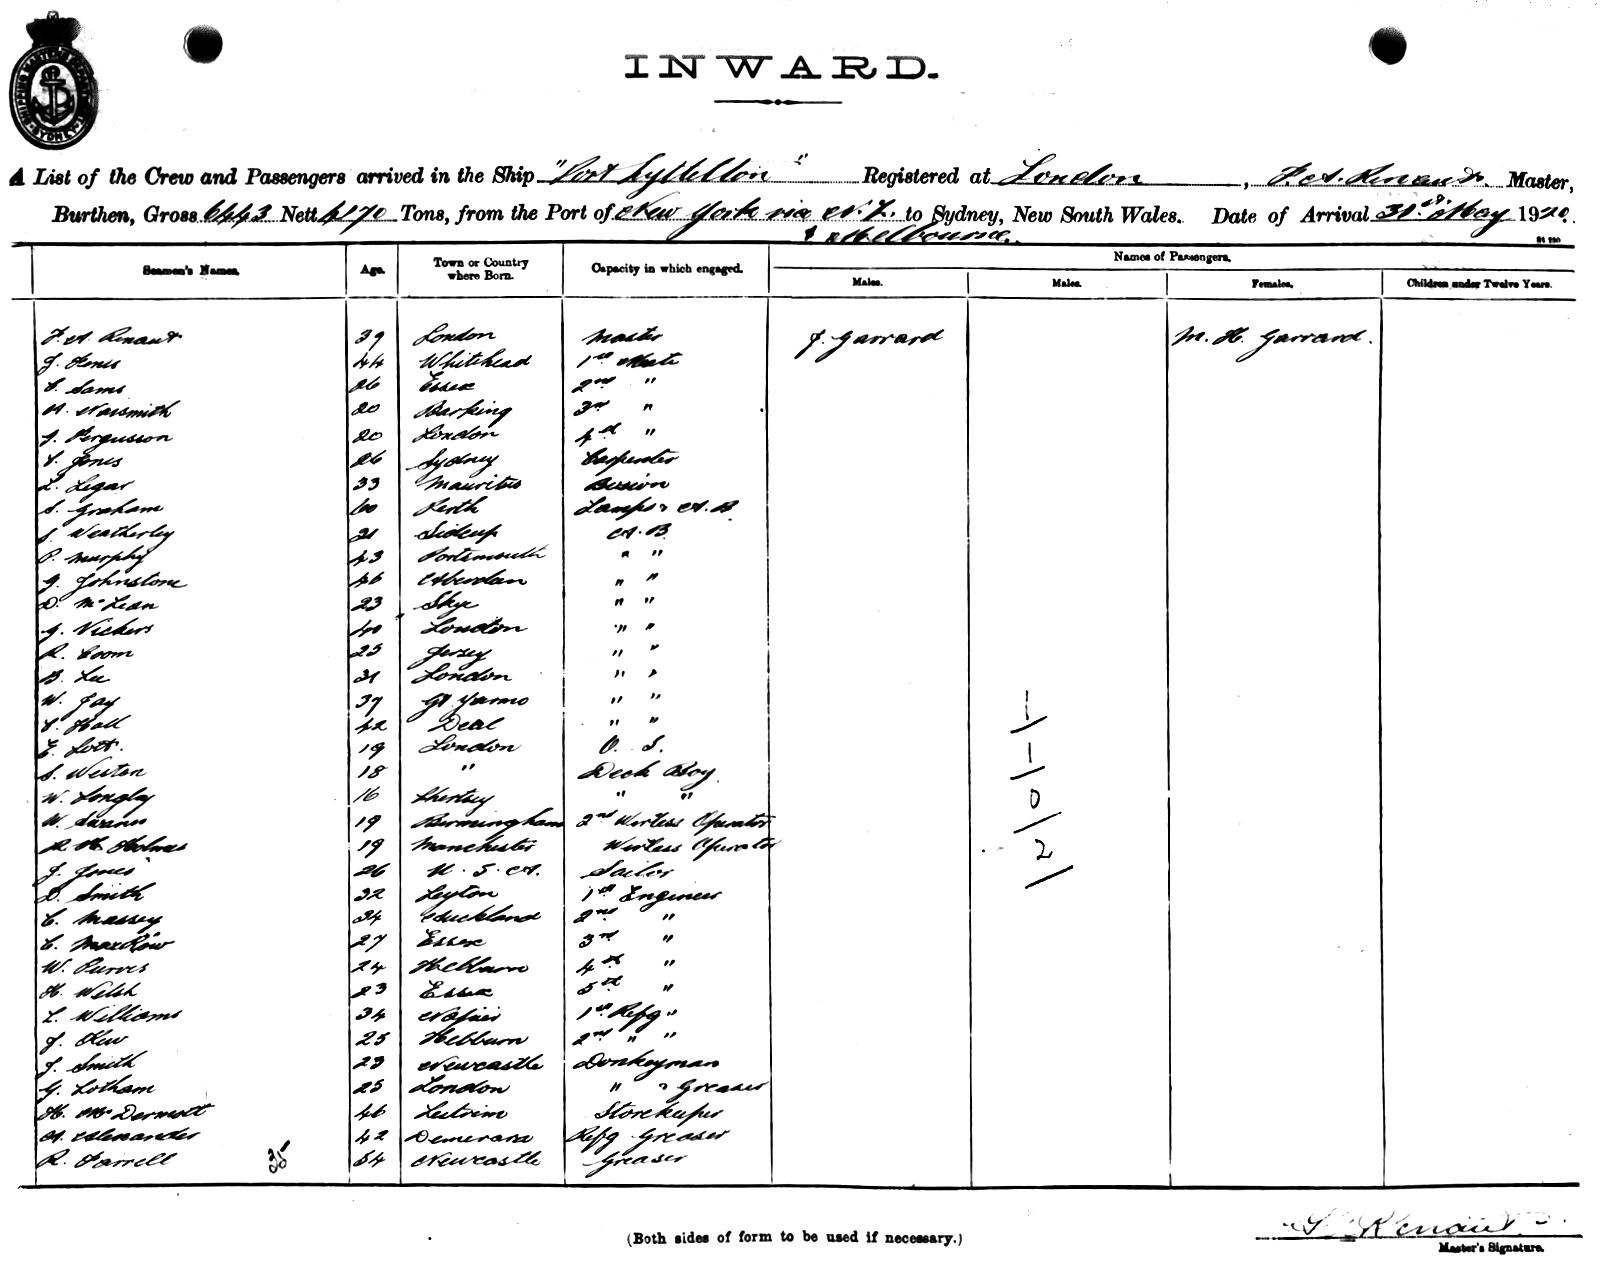 SHIPPING MASTER'S DEPARTMENT SYDNEY
INWARD.
A List of the Crew and Passengers arrived in the Ship "Port Lyttelton" Registered at London, F. A. Renaut. Master,
Burthen, Gross 6443 Nett 4170 Tons, from the Port of New York via N.Z. to Sydney, New South Wales. Date of Arrival 31st May 1920.
& Melbourne.
Seamen's Names. Age. Town or Country where Born. Capacity in which engaged. Names of Passengers.
Males. Males. Females. Children under Twelve Years.
F. A. Renaut 39 London Master J. Garrard M. H. Garrard.
J. Jones 44 Whitehead 1st Mate
C. Sams 26 Essex 2nd "
A. Nasmith 20 Barking 3rd "
J. Fergusson 20 London 4th "
C. Jones 26 Sydney Carpenter
L. Legar 33 Mauritus Bosion
S. Graham 60 Perth Lamps & A.B
S. Weatherley 21 Sidcup A.B.
P. Murphy 43 Portsmouth " "
G. Johnstone 46 Aberdan " "
D. McLean 23 Skye " "
G. Vickers 40 London " "
R. Coom 25 Jersey " "
B. Lee 31 London " "
W. Jay 37 Gt Yarmo " "
C. Hall 42 Deal " "
E. Lott. 19 London O. S.
S. Weston 18 " Deck Boy
W. Longley 16 Chertsey " "
W. Swann 19 Birmingham 2nd Wirless Operator
R H Holmes 19 Manchester Wirless Operator
J. Jones 26 U. S. A. Sailor
D. Smith 32 Leyton 1st Engineer
C. Massey 34 Auckland 2nd "
C. MacRow 27 Essex 3rd "
W. Purves 24 Hebburn 4th "
H. Welsh 23 Essex 5th "
L. Williams 34 Napier 1st Refg "
J. Kew 25 Hebburn 2nd " "
J. Smith 23 Newcastle Donkeyman
G. Lotham 25 London " & Greaser
H. McDermott 46 Leitrim Storekeeper
A. Alexander 42 Demerara Refg Greaser
R. Farrell 35 54 Newcastle Greaser
1/2/0/1-1-
(Both sides of form to be used if necessary.)
F. Renaut
Master's Signature.